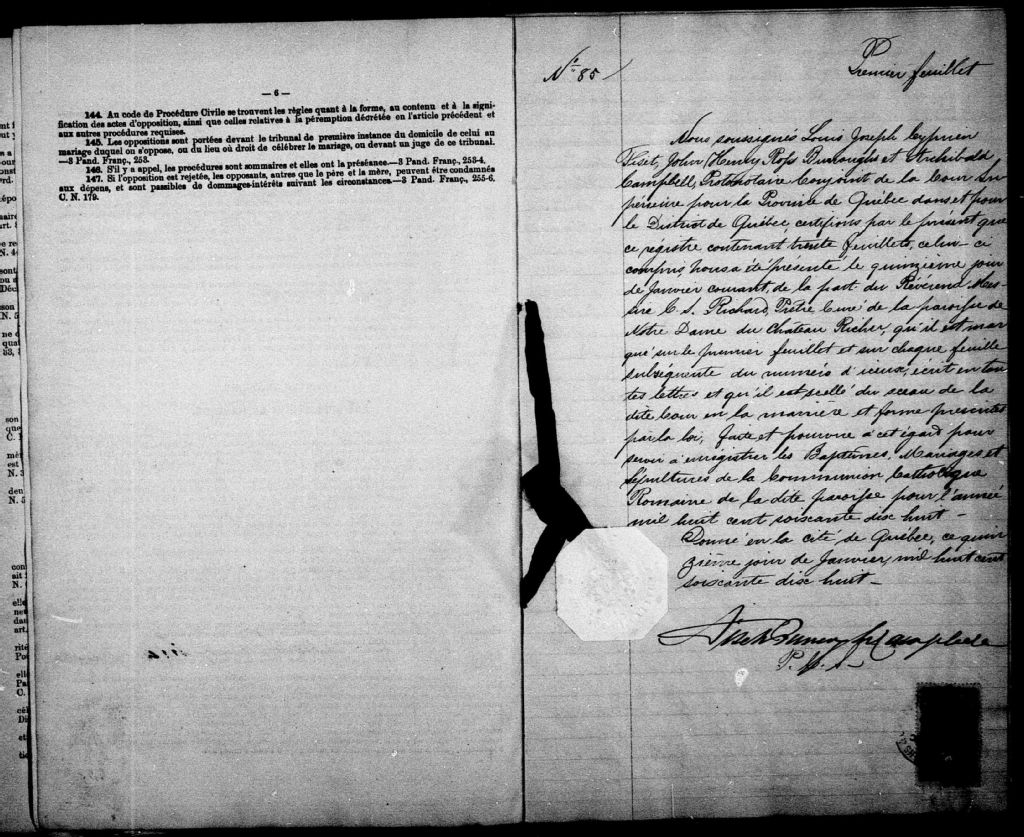 — 6 —
144. Au code de Procédure Civile se trouvent les règles quant à la forme, au contenu et à la signi-
fication des actes d'opposition, ainsi que celles relatives à la péremption décrétée en l'article précédent et
aux autres procédures requises.
145. Les oppositions sont portées devant le tribunal de première instance du domicile de celui au
mariage duquel on s'oppose, ou du lieu où droit de célébrer le mariage, ou devant un juge de ce tribunal.
—3 Pand. Franç., 253.
146. S'il y a appel, les procédures sont sommaires et elles ont la préséance.—3 Pand. Franç., 253-4.
147. Si l'opposition est rejetée, les opposants, autres que le père et la mère, peuvent être condamnés
aux dépens, et sont passibles de dommages-intérêts suivant les circonstances.—3 Pand. Franç., 255-6.
C. N. 179.
No 85
Premier feuillet
Nous soussignés Louis Joseph Cyprien
Fiset, John Henry Ross Burroughs et Archibald
Campbell, Protonotaire Conjoint de la Cour Su
périeure pour la Province de Québec dans et pour
le District de Québec, certifions par le présent que
ce régistre contenant trente feuillets, celui-ci
compris, nous a été présenté le quinzième jour
de Janvier courant, de la part du Révérend Mes-
sire C. S. Richard, Prêtre Curé de la paroisse de
Notre Dame du Chateau Richer, qu'il est mar
qué sur le premier feuillet et sur chaque feuille
subséquente du numéro d'iceux, écrit en tou
tes lettres et qu'il est scellé du sceau de la
dite Cour en la manière et forme préscrites
par la loi, faite et pourvue à cet égard pour
servir à enregistrer les Baptêmes, Mariages et
Sépultures de la Communion Catholique
Romaine de la dite paroisse pour l'année
mil huit cent soixante dix huit —
Donné en la cité de Québec, ce quin
zième jour de Janvier, mil huit cent
soixante dix huit —
Fiset Burroughs Campbell
P. C. S.